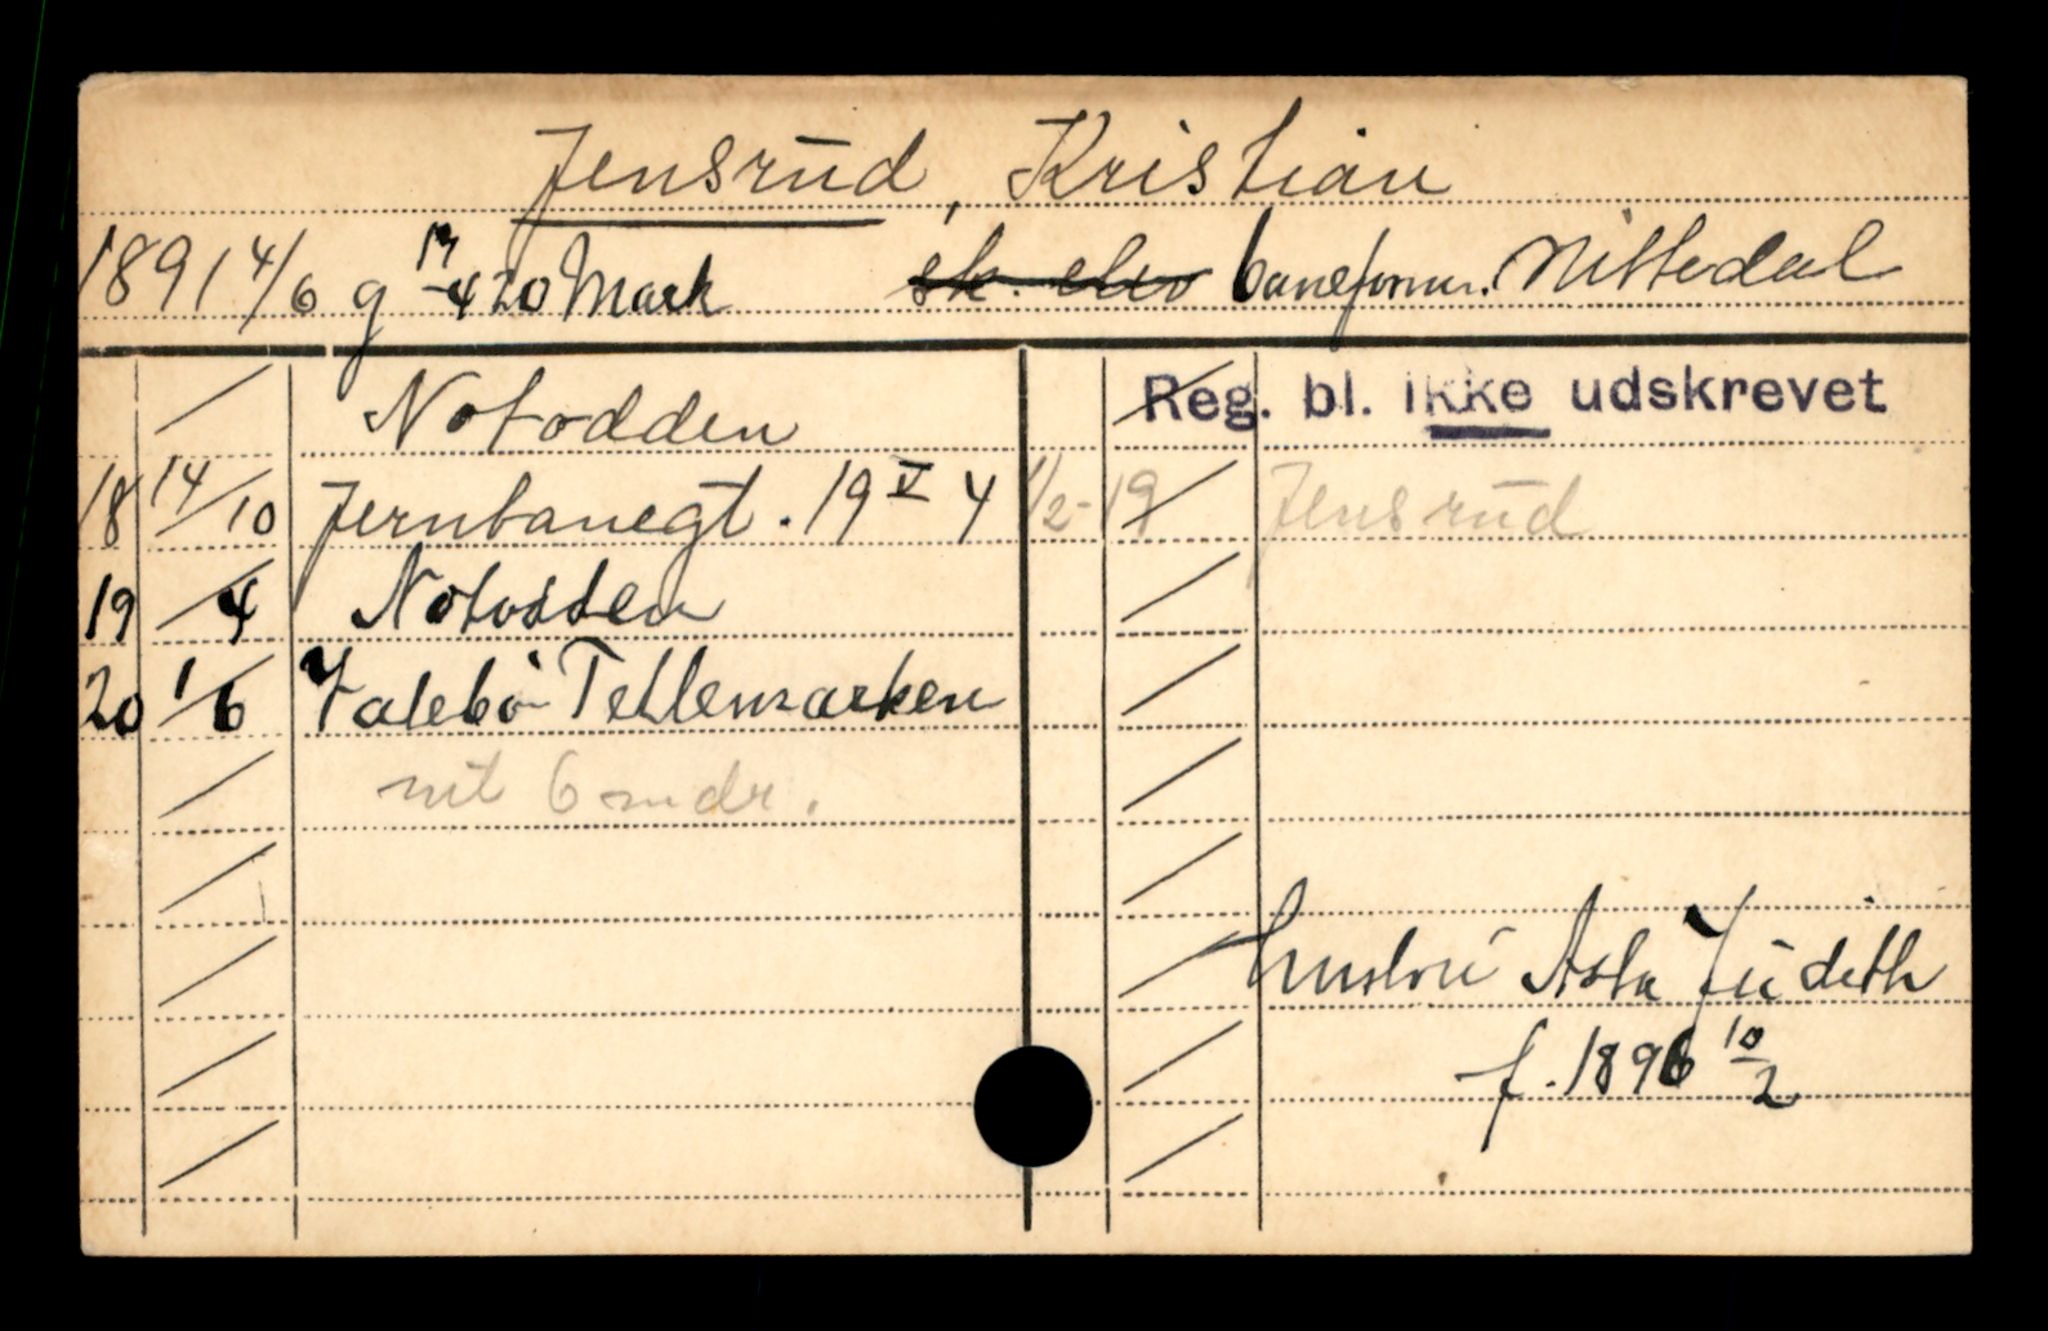 Jensrud, Kristian
1891 4/6 g 17/4 20 Mark sk. elev baneform. Nittedal
Notodden
Reg. bl. ikke udskrevet
18 14/10 Jernbanegt. 19 V 4 1/2-19 Jensrud
19 /4 Notodden
20 1/6 Valebø Tellemarken
nit 6 mdr.
hustru Asta Judith
f. 1896 10/2